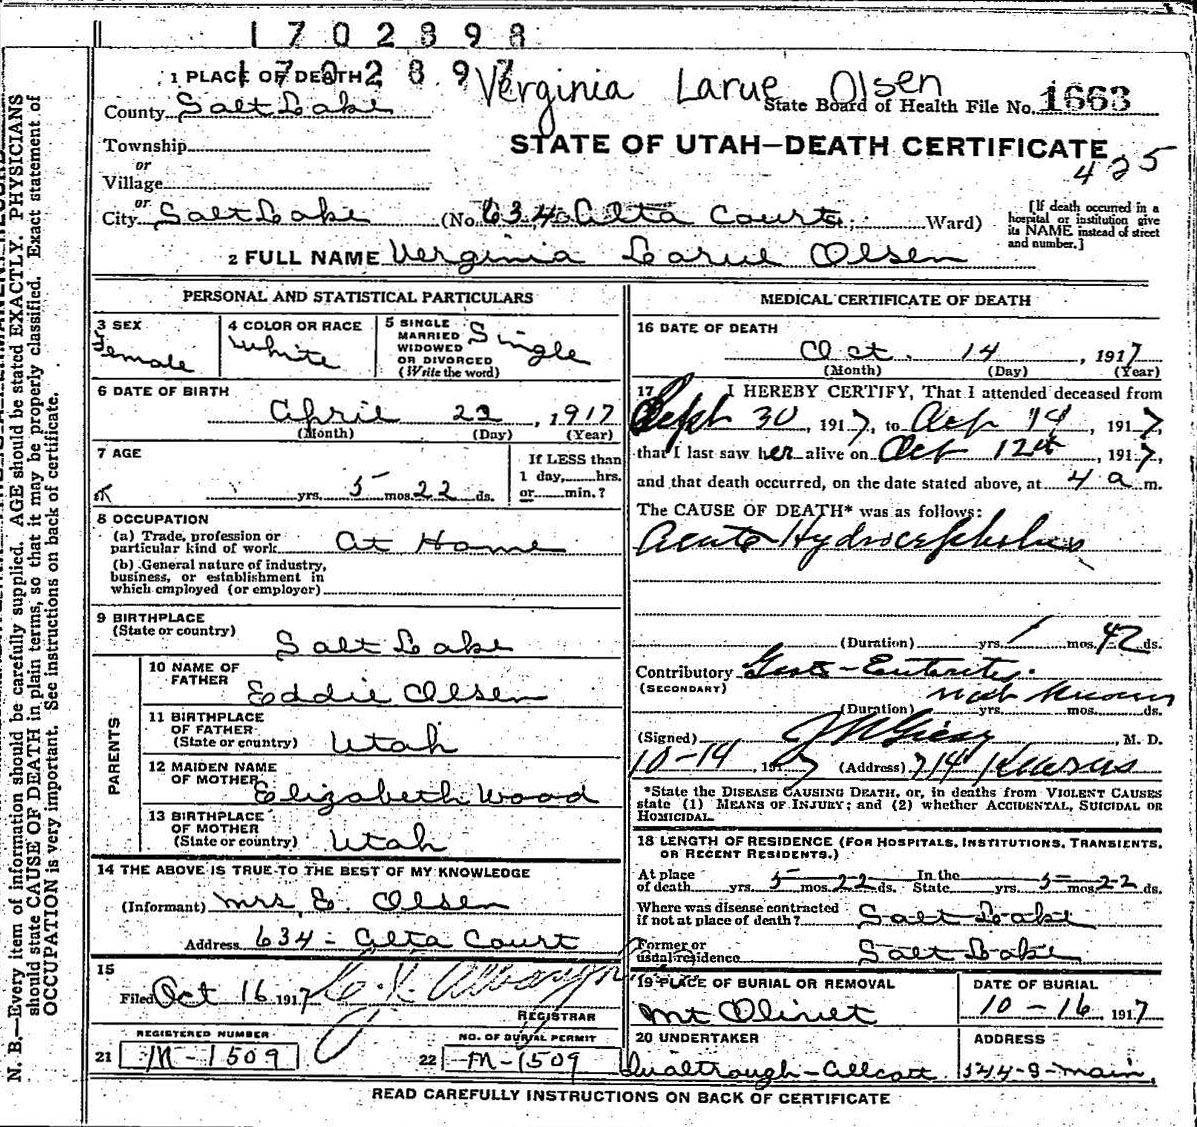 1702898
1702897
Verginia Larue Olsen
1 PLACE OF DEATH
County Salt Lake
State Board of Health File No. 1663
Township
STATE OF UTAH—DEATH CERTIFICATE
425
or
Village
or
City Salt Lake (No. 634 Alta Court St.; Ward)
[If death occurred in a
hospital or institution give
its NAME instead of street
and number.]
2 FULL NAME Verginia Larue Olsen
PERSONAL AND STATISTICAL PARTICULARS
3 SEX
Female
4 COLOR OR RACE
White
5 SINGLE
MARRIED
WIDOWED
OR DIVORCED
(Write the word)
Single
6 DATE OF BIRTH
April 22, 1917
(Month) (Day) (Year)
7 AGE
yrs. 5 mos. 22 ds.
If LESS than
1 day, hrs.
or min.?
8 OCCUPATION
(a) Trade, profession or
particular kind of work At Home
(b) General nature of industry,
business, or establishment in
which employed (or employer)
9 BIRTHPLACE
(State or country)
Salt Lake
PARENTS
10 NAME OF
FATHER
Eddie Olsen
11 BIRTHPLACE
OF FATHER
(State or country) Utah
12 MAIDEN NAME
OF MOTHER
Elizabeth Wood
13 BIRTHPLACE
OF MOTHER
(State or country) Utah
14 THE ABOVE IS TRUE TO THE BEST OF MY KNOWLEDGE
(Informant) Mrs. E. Olsen
Address 634 - Alta Court
15
Filed Oct 16 1917
REGISTRAR
REGISTERED NUMBER
21 M-1509
NO. OF BURIAL PERMIT
22 M-1509
MEDICAL CERTIFICATE OF DEATH
16 DATE OF DEATH
Oct. 14, 1917
(Month) (Day) (Year)
17 I HEREBY CERTIFY, That I attended deceased from
Sept 30, 1917, to Oct 14, 1917,
that I last saw her alive on Oct 12th, 1917,
and that death occurred, on the date stated above, at 4 a m.
The CAUSE OF DEATH* was as follows:
Acute Hydrocephalus
(Duration) yrs. mos. ds.
Contributory Gastro-Enteritis.
(SECONDARY)
not known
(Duration) yrs. mos. ds.
(Signed) , M. D.
10-14, 1917 (Address) 714 Kearns
*State the DISEASE CAUSING DEATH, or, in deaths from VIOLENT CAUSES
state (1) MEANS OF INJURY; and (2) whether ACCIDENTAL, SUICIDAL OR
HOMICIDAL.
18 LENGTH OF RESIDENCE (FOR HOSPITALS, INSTITUTIONS, TRANSIENTS,
OR RECENT RESIDENTS.)
At place
of death yrs. 5 mos. 22 ds. In the
State yrs. 5 mos. 22 ds.
Where was disease contracted
if not at place of death? Salt Lake
Former or
usual residence Salt Lake
19 PLACE OF BURIAL OR REMOVAL
Mt Olivet
DATE OF BURIAL
10-16, 1917
20 UNDERTAKER
Qualtrough-Allcott
ADDRESS
144-S-Main,
READ CAREFULLY INSTRUCTIONS ON BACK OF CERTIFICATE
N. B.—Every item of information should be carefully supplied. AGE should be stated EXACTLY. PHYSICIANS
should state CAUSE OF DEATH in plain terms, so that it may be properly classified. Exact statement of
OCCUPATION is very important. See instructions on back of certificate.